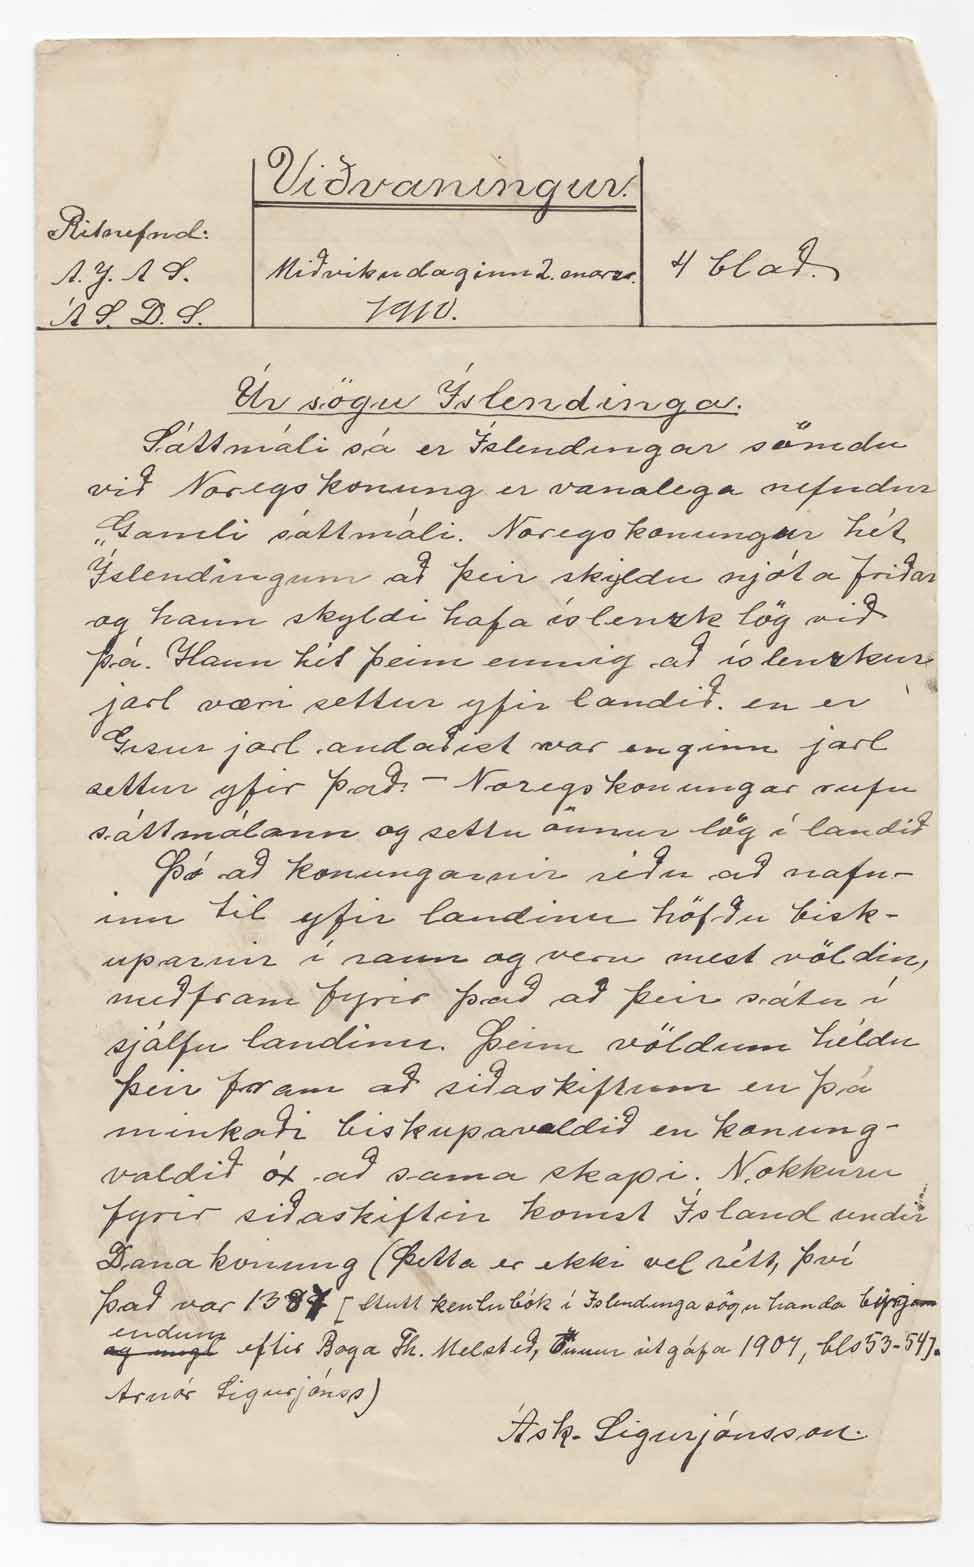 Viðvaningur.
Ritnefnd:
A. J. A S.
Á S. D. S.
Miðvikudaginn 2. marz.
1910.
4 blað.
Úr sögu Íslendinga.
Sáttmáli sá er Íslendingar sömdu
við Noregskonung er vanalega nefndur
„Gamli sáttmáli. Noregskonungur hét
Íslendingum að þeir skyldu njóta friðar
og hann skyldi hafa íslenzk lög við
þá. Hann hét þeim ennig að íslenzkur
jarl væri settur yfir landið. en er
Gisur jarl andaðist var enginn jarl
settur yfir það. – Noregskonungar rufu
sáttmálann og settu önnur lög í landið
Þó að konungarnir réðu að nafn-
inu til yfir landinu höfðu bisk-
uparnir í raun og veru mest völdin,
meðfram fyrir það að þeir sátu í
sjálfu landinu. Þeim völdum héldu
þeir fram að siðaskiftum en þá
minkaði biskupavaldið en konung-
valdið óx að sama skapi. Nokkuru
fyrir siðaskiftin komst Ísland undir
Danakonung (Þetta er ekki vel rétt, því
það var 1387 [Stutt kenlubók í Íslendinga sögu handa byrjam
endum
og ungl eftir Boga Th. Melsteð, Önnur útgáfa 1907, bls 53-54].
Arnór Sigurjónss)
Ásk. Sigurjónsson.